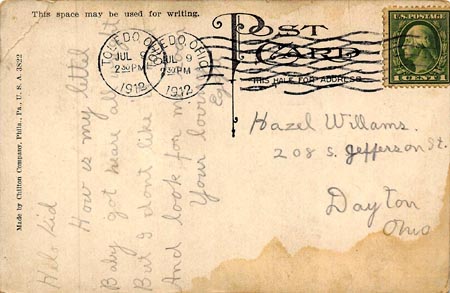 This space may be used for writing.
POST CARD
THIS HALF FOR ADDRESS
U.S. POSTAGE
1 CENT 1
TOLEDO, OHIO
JUL 9
2 30 PM
1912
TOLEDO, OHIO
JUL 9
2 30 PM
1912
Made by Chilton Company, Phila., Pa., U. S. A. 3822
Helo Kid
How is my littel
Baby got heare al
But I dont like
And look for m
Your lovin
Hazel Willams.
208 S. Jefferson St.
Dayton
Ohio